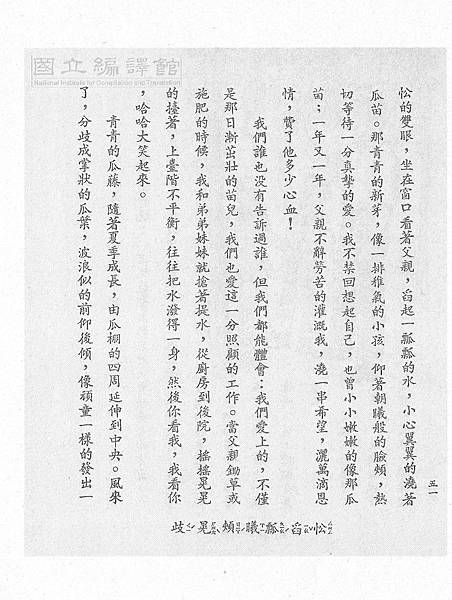 國立編譯館
National Institute for Compilation and Translation
忪的雙眼，坐在窗口看著父親，舀起一瓢瓢的水，小心翼翼的澆著
瓜苗。那青青的新芽，像一排稚氣的小孩，仰著朝曦般的臉頰，熱
切等待一分真摯的愛。我不禁回想起自己，也曾小小嫩嫩的像那瓜
苗；一年又一年，父親不辭勞苦的灌溉我，澆一串希望，灑萬滴恩
情，費了他多少心血！
我們誰也沒有告訴過誰，但我們都能體會：我們愛上的，不僅
是那日漸茁壯的苗兒，我們也愛這一分照顧的工作。當父親鋤草或
施肥的時候，我和弟弟妹妹就搶著提水，從廚房到後院，搖搖晃晃
的擡著，上臺階不平衡，往往把水潑得一身，然後你看我，我看你
，哈哈大笑起來。
青青的瓜藤，隨著夏季成長，由瓜棚的四周延伸到中央。風來
了，分歧成掌狀的瓜葉，波浪似的前仰後傾，像頑童一樣的發出一
五一
忪舀瓢曦頰晃歧